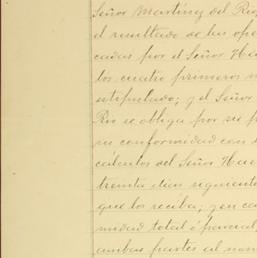 Señor Martínez del Río,
el resultado de las ope
cadas por el Señor Hu
los cuatro primeros m
estipulado; y el Señor
Río se obliga por su p
su conformidad con
cálculos del Señor Hu
treinta días siguiente
que los reciba; y en ca
midad total ó parcial,
ambas partes al nom